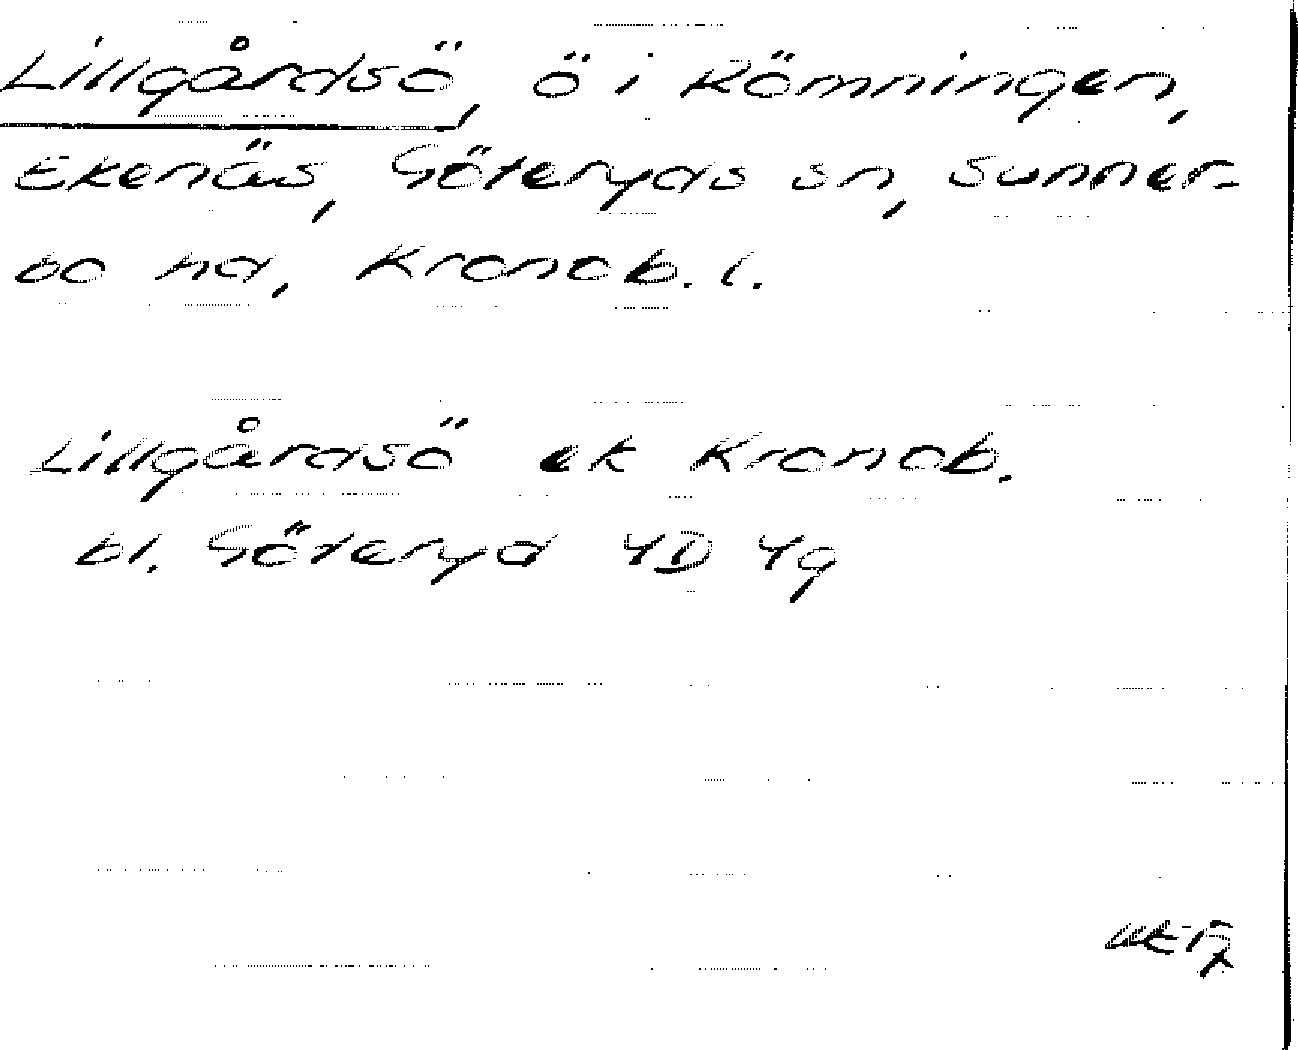 Lillgårdsö, ö i Römningen,
Ekenäs, Göteryds sn, Sunner-
bo hd, Kronob. l.
Lillgårdsö ek Kronob.
bl. Göteryd 4D 4g